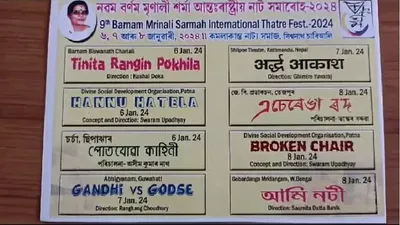 নৱম বৰ্ণম মৃণালী শৰ্মা আন্তঃৰাষ্ট্ৰীয় নাট সমাৰোহ-২০২৪
9th Barnam Mrinali Sarmah International Thatre Fest.-2024
৬, ৭ আৰু ৮ জানুৱাৰী, ২০২৪ ॥ কমলাকান্ত নাট্য সমাজ, বিশ্বনাথ চাৰিআলি
Barnam Biswanath Chariali
6 Jan. 24
Tinita Rangin Pokhila
Direction : Kushal Deka
Divine Social Development Organisation, Patna
HANNU HATELA
6 Jan. 24
Concept and Direction: Swaram Upadhyay
চৰ্চা, ছিপাঝাৰ
6 Jan. 24
পোতযোৱা কাহিনী
পৰিচালনা-অসীম কুমাৰ নাথ
Abhigyanam, Guwahati
GANDHI VS GODSE
7 Jan. 24
Direction: Rangitang Choudhury
Shilpee Theatre, Kathmandu, Nepal
7 Jan. 24
অৰ্দ্ধ আকাশ
Direction: Ghimire Yuvaraj
8 Jan. 24
Divine Social Development Organisation, Patna
BROKEN CHAIR
8 Jan. 24
Direction: Swaram Upadhyay
Gobardanga Mridangam, W.Bengal
8 Jan. 24
আমি নটী
Direction: Saumita Dutta Banik